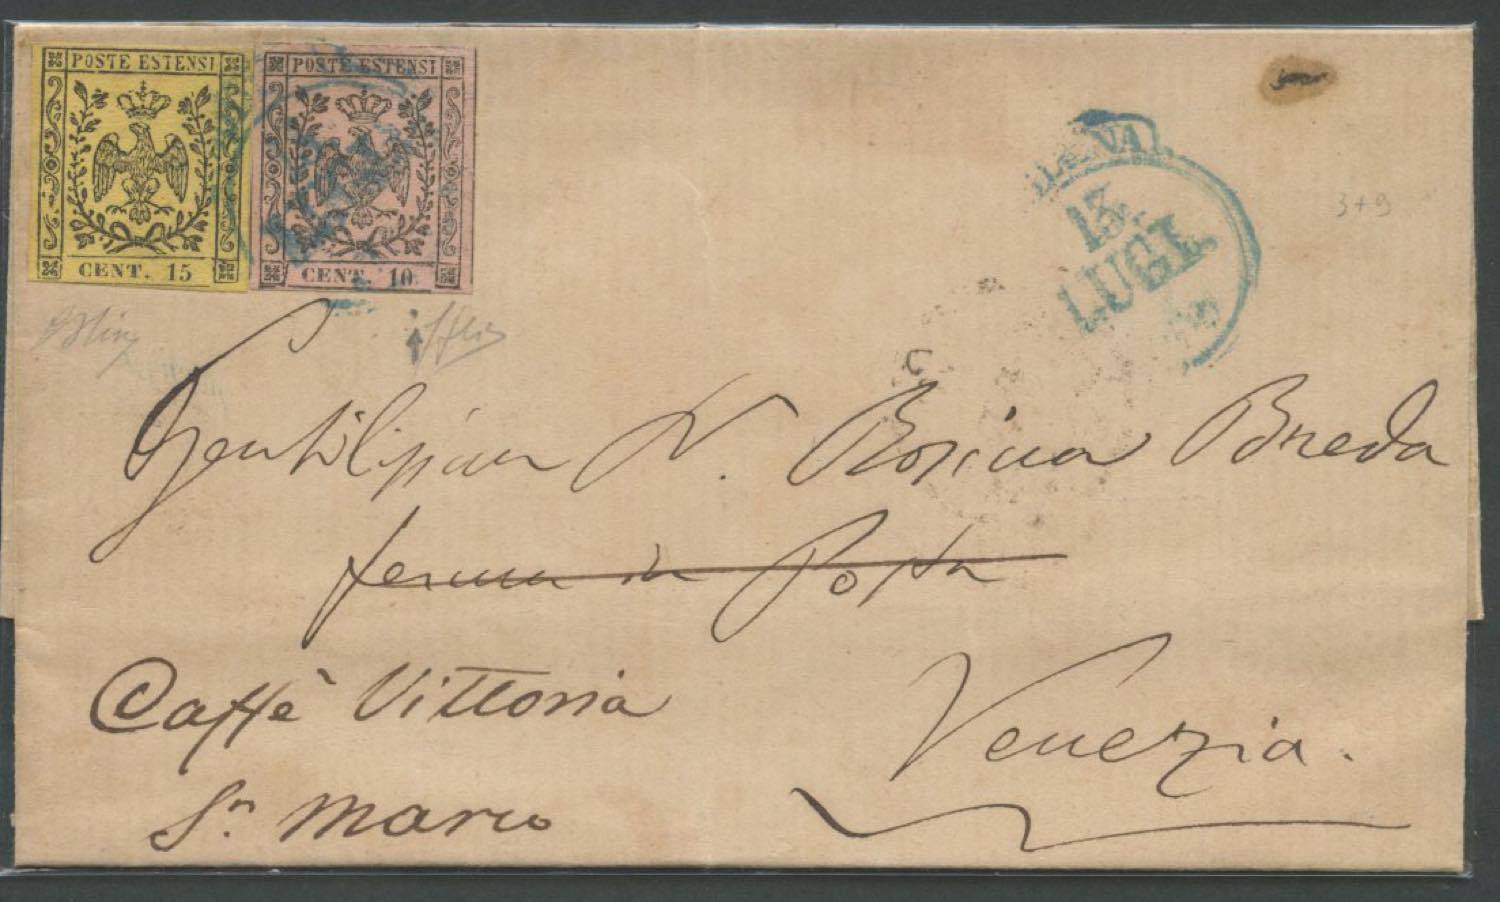 POSTE ESTENSI
CENT. 15
POSTE ESTENSI
CENT. 10.
13.
LUGL.
3+9
Gentilissima N. Rosina Breda
ferma in Posta
Caffè Vittoria
Sn. Marco
Venezia.